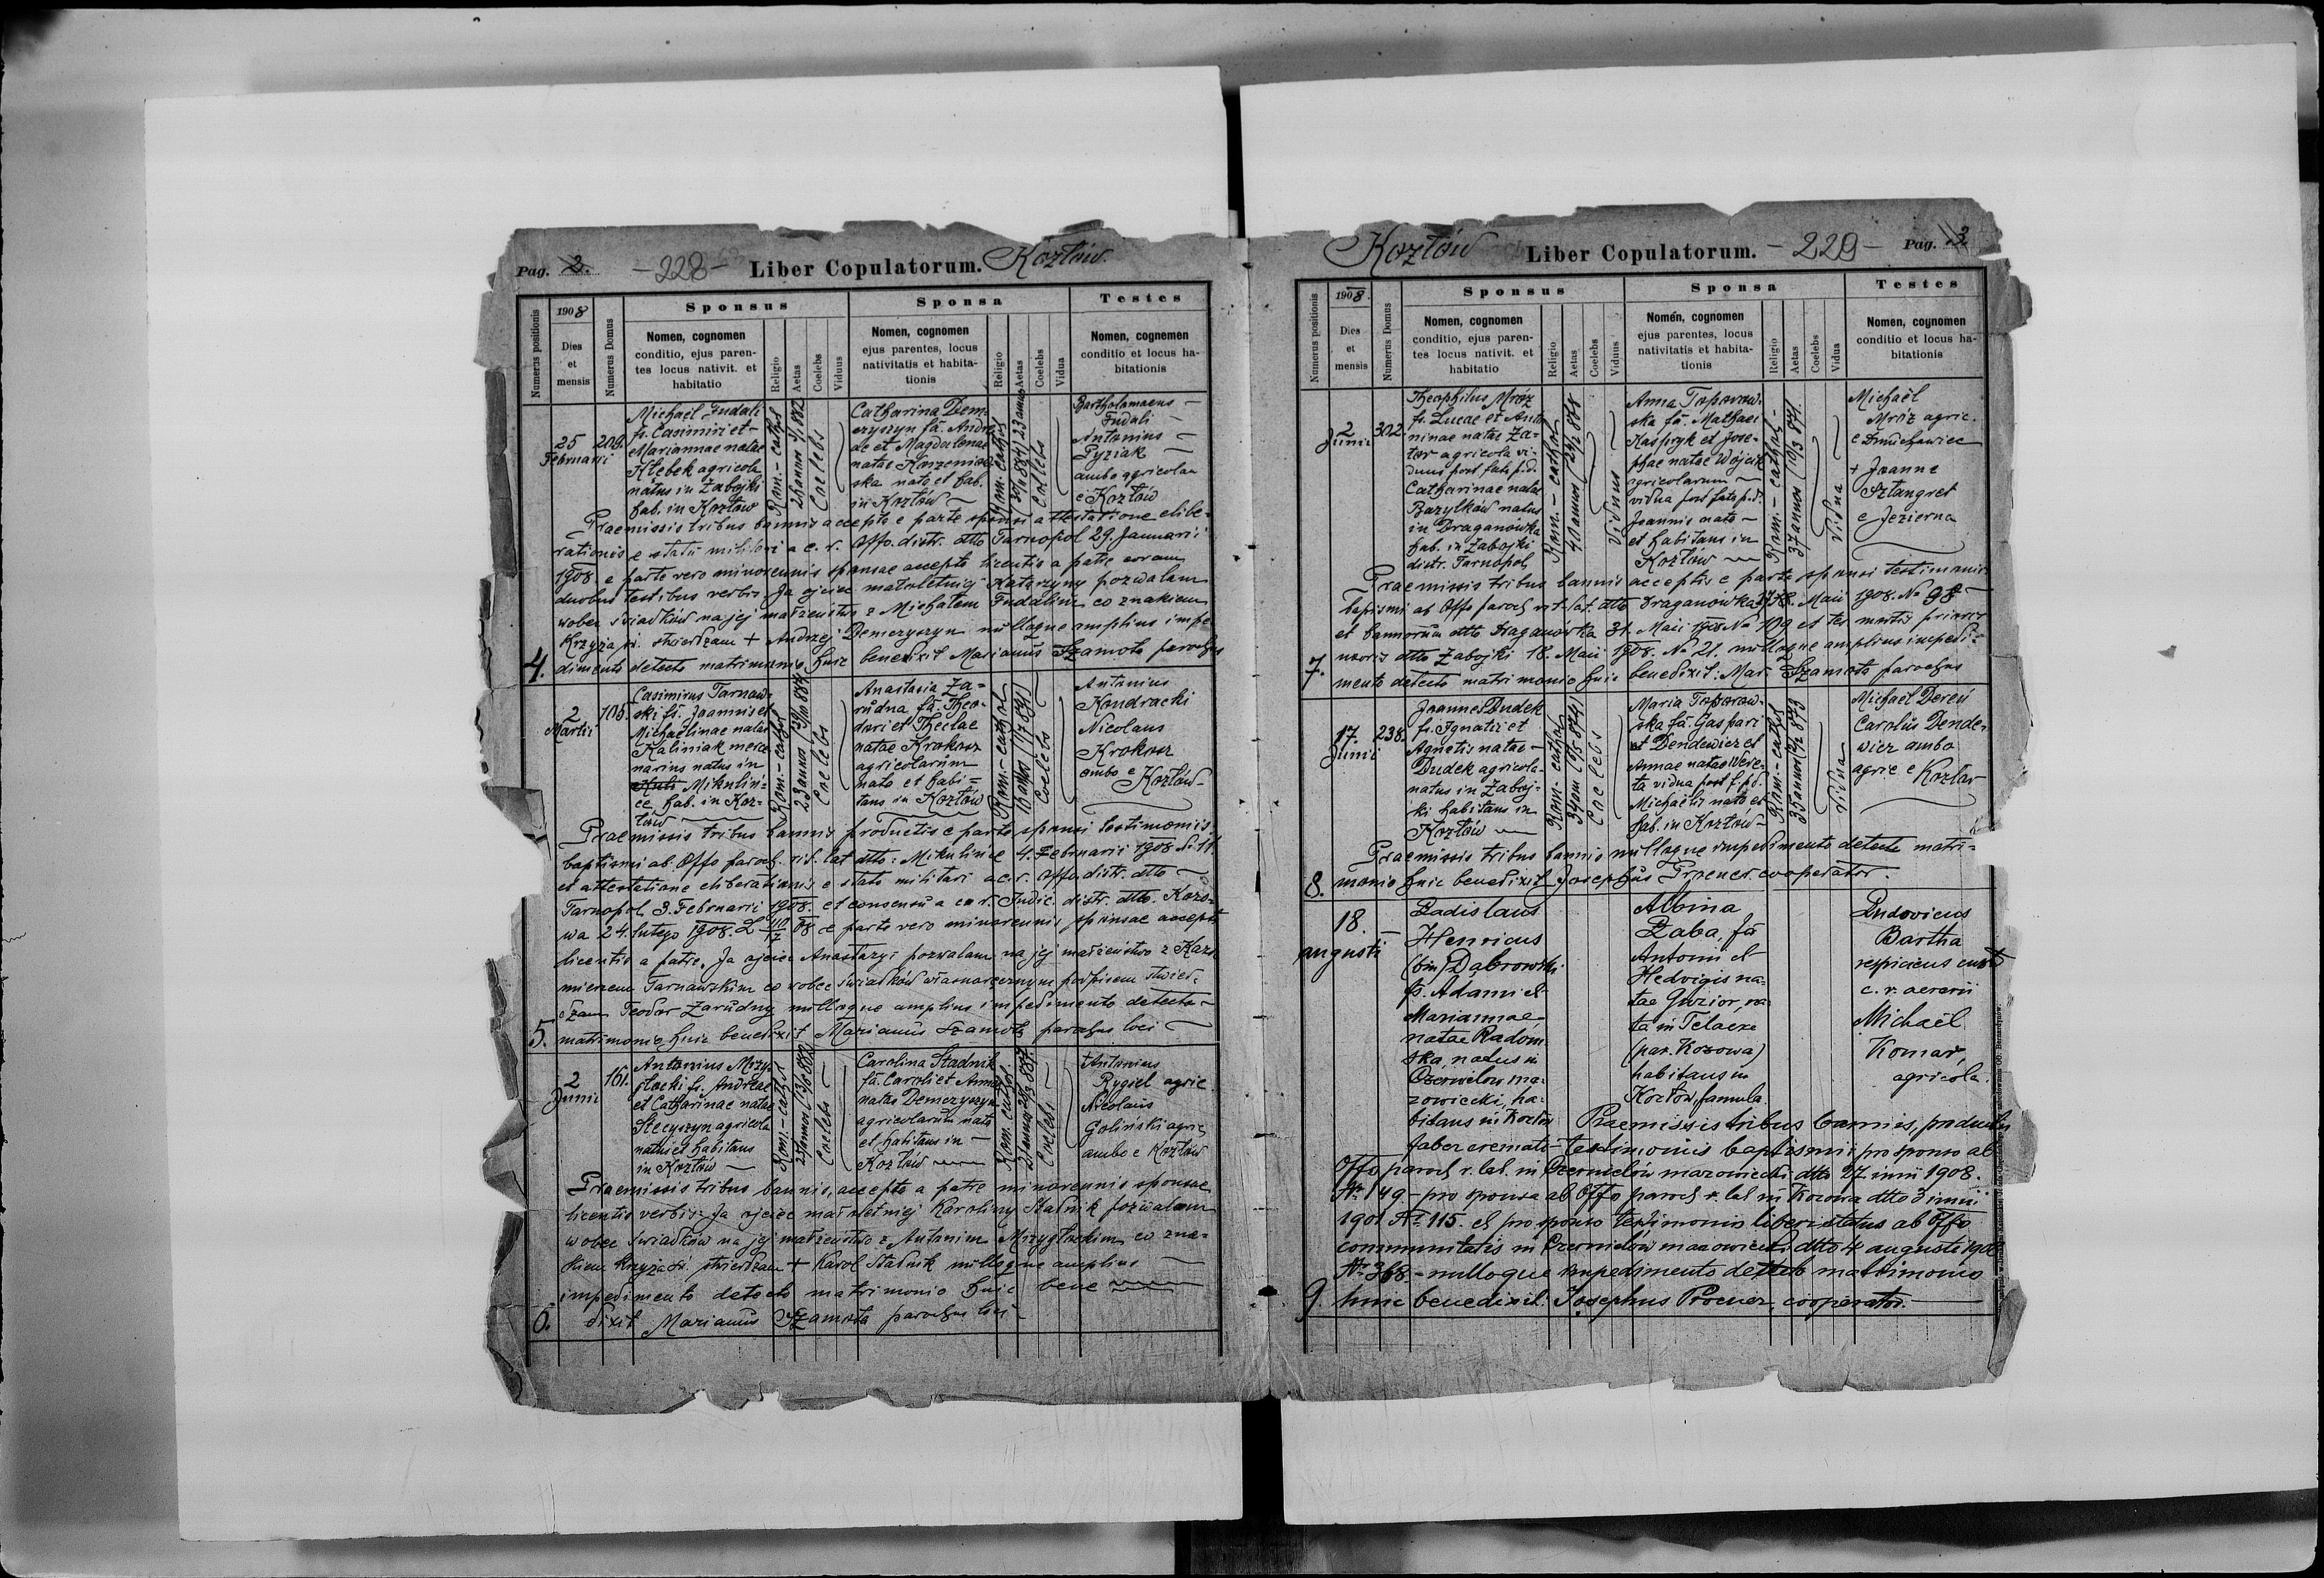 Pag. 2. -228- Liber Copulatorum. Kozłów.
Numerus positionis
1908
Dies
et
mensis
Numerus Domus
Sponsus
Nomen, cognomen
conditio, ejus paren-
tes locus nativit. et
habitatio
Religio
Aetas
Coelebs
Viduus
Sponsa
Nomen, cognomen
ejus parentes, locus
nativitatis et habita-
tionis
Religio
Aetas
Coelebs
Vidua
Testes
Nomen, cognemen
conditio et locus ha-
bitationis
4.
25
Februarii
209.
Michaël Fudali
fs. Casimiri et
Mariannae natae
Hlebek agricola
natus in Zabojki
hab. in Kozłów
Rom.-cathol
Coelebs
Catharina Dem-
czyszyn fa. Andre
ae et Magdalenae
natae Korzeniow
ska nata et hab.
in Kozłów
Rom.-cathol
Coelebs
Bartholomaeus
Fudali
Antonius
Pyziak
ambo agricolae
e Kozłów
Praemissis tribus bannis accepta e parte sponsi attestatione elibe-
rationis e statu militari a c. r. Offo. distr. dtto Tarnopol 29. Januarii
1908. e parte vero minorennis sponsae accepta licentia a patre coram
duobus testibus verbis. Ja ojciec małoletniej Katarzyny pozwalam
wobec świadków na jej małżeństwo z Michałem Fudalim co znakiem
Krzyża św. stwierdzam + Andrzej Demczyszyn nulloque amplius impe
dimento detecto matrimonio huic benedixit Marianus Szamota parochus
5.
2
Martii
105.
Casimirus Tarnaw-
ski fs. Joannis et
Michaelinae natae
Kaliniak merce
narius natus in
Mikuliń-
ce hab. in Koz-
łów
Rom.-cathol
Coelebs
Anastasia Za-
rudna fa. Theo-
dori et Theclae
natae Krokosz
agricolarum
nata et habi-
tans in Kozłów
Rom.-cathol
Coelebs
Antonius
Kondracki
Nicolaus
Krokosz
ambo e
Kozłów
Praemissis tribus bannis productis e parte sponsi testimoniis
baptismi ab Offo paroch. rit. lat dtto: Mikulińce 4. Februarii 1908 N 11.
et attestatione eliberationis e statu militari a c. r. Offo distr. dtto
Tarnopol 3. Februarii 1908. et consensu a c. r. Judic. distr. dtto. Kozo-
wa 24. lutego 1908. L 08 e parte vero minorennis sponsae accepta
licentia a patre. Ja ojciec Anastazyi pozwalam na jej małżeństwo z Kazi
mierzem Tarnawskim co wobec świadków własnoręcznym podpisem stwier-
dzam Teodor Zarudny nulloque amplius impedimento detecto
matrimonio huic benedixit Marianus Szamota parochus loci
6.
2
Junii
161.
Antonius Mrzy-
głocki fs. Andreae
et Catharinae natae
Stecyszyn agricola
natus et habitans
in Kozłów
Rom.-cathol
Coelebs
Carolina Stadnik
fa. Caroli et Annae
natae Demczyszyn
agricolarum nata
et habitans in
Kozłów
Rom. cathol
Coelebs
+Antonius
Rygiel agric.
Nicolaus
Goliński agric
ambo e Kozłów
Praemissis tribus bannis, accepta a patre minorennis sponsae
licentia verbis: Ja ojciec małoletniej Karoliny Stadnik pozwalam
wobec świadków na jej małżeństwo z Antonim Mrzygłockim co zna-
kiem krzyża św. stwierdzam + Karol Stadnik nulloque amplius
impedimento detecto matrimonio huic bene
dixit Marianus Szamota parochus loci
Kozłów Liber Copulatorum. -229- Pag. 3.
Numerus positionis
1908.
Dies
et
mensis
Numerus Domus
Sponsus
Nomen, cognomen
conditio, ejus paren-
tes locus nativit. et
habitatio
Religio
Aetas
Coelebs
Viduus
Sponsa
Nomen, cognomen
ejus parentes, locus
nativitatis et habita-
tionis
Religio
Aetas
Coelebs
Vidua
Testes
Nomen, cognomen
conditio et locus ha-
bitationis
7.
2
Junii
302.
Theophilus Mróz
fs. Lucae et Anto
ninae natae Za-
tor agricola vi-
duus post fata p.d.
Catharinae natae
Bazylków natus
in Draganówka
hab. in Zabojki
distr. Tarnopol
Rom.-cathol
Viduus
Anna Toporow-
ska fa. Mathaei
Kaspryk et Jose-
phae natae Wójcik
agricolarum
vidua post fata p.d.
Joannis nata
et habitans in
Kozłów
Rom.-cathol
Vidua
Michaël
Mróz agric.
e Dmuchawiec
+ Joanne
Sztangret
e Jezierna
Praemissis tribus bannis acceptis e parte sponsi testimonis
baptismi ab Offo paroch rit. lat. dtto Draganówka 28. Maii 1908. No 98
et bannorum dtto Draganówka 31. Maii 1908 No 109 et test mortis prioris
uxoris dtto Zabojki 18. Maii 1908. No 21. nulloque amplius impedi-
mento detecto matrimonio huic benedixit: Mar. Szamota parochus
8.
17.
Junii
238.
Joannes Dudek
fs. Ignatii et
Agnetis natae
Dudek agricola
natus in Zaboj-
ki habitans in
Kozłów
Rom.-cathol
Coelebs
Maria Toporow-
ska fa. Gaspari
Dendewicz et
Annae natae Were-
ta vidua post f. p.d.
Michaëlis nata et
hab. in Kozłów
Rom.-cathol
Vidua
Michaël Dereń
Carolus Dende-
wicz ambo
agric e Kozłów
Praemissis tribus bannis nulloque impedimento detecto matri-
monio huic benedixit Josephus Procner cooperator.
9.
18.
augusti
Ladislaus
Henricus
(bin) Dąbrowski
fs. Adami et
Mariannae
natae Radom
ska, natus in
Czernielow ma-
zowiecki, ha-
bitans in Kozłów
faber
Albina
Żaba, fa
Antonii et
Hedvigis na-
tae Guzior, na-
ta in Telacze
(par. Kozowa)
habitans in
Kozłów, famula.
Ludovicus
Bartha
respiciens
c. r. aerarii
Michaël
Komar,
agricola.
Praemissis tribus bannis, productis
testimoniis baptismi: pro sponso ab
Offo paroch r. lat. in Czernielów mazowiecki dtto 27 junii 1908.
No 149 - pro sponsa ab Offo paroch r. lat in Kozowa dtto 3 junii
1901 No 115. et pro sponso testimonio liberi status ab Offo
communitatis in Czernielów mazowiecki dtto 4 augusti 1908
No 368. - nulloque impedimento detecto matrimonio
huic benedixit. Josephus Procner, cooperator.